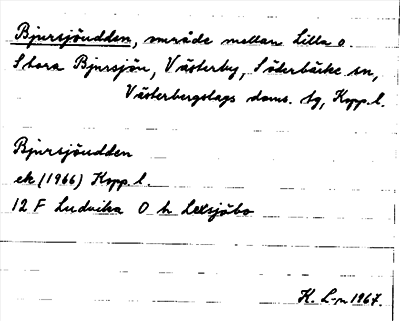 Bjursjöudden, område mellan Lilla o.
Stora Bjursjön, Västerby, Söderbärke sn,
Västerbergslags doms. tg, Kopp. l.
Bjursjöudden
ek (1966) Kopp. l.
12 F Ludvika O h Lexsjöbo
K. L-n 1967.